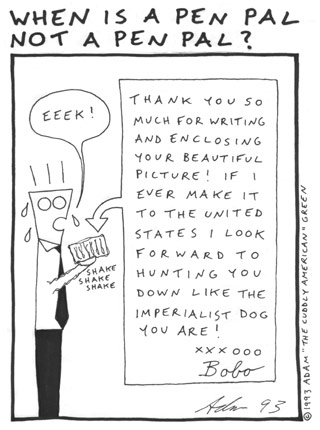 WHEN IS A PEN PAL
NOT A PEN PAL?
EEEK!
THANK YOU SO
MUCH FOR WRITING
AND ENCLOSING
YOUR BEAUTIFUL
PICTURE! IF I
EVER MAKE IT
TO THE UNITED
STATES I LOOK
FORWARD TO
HUNTING YOU
DOWN LIKE THE
IMPERIALIST DOG
YOU ARE!
XXXOOO
Bobo
SHAKE
SHAKE
SHAKE
Adam 93
©1993 ADAM "THE CUDDLY AMERICAN" GREEN